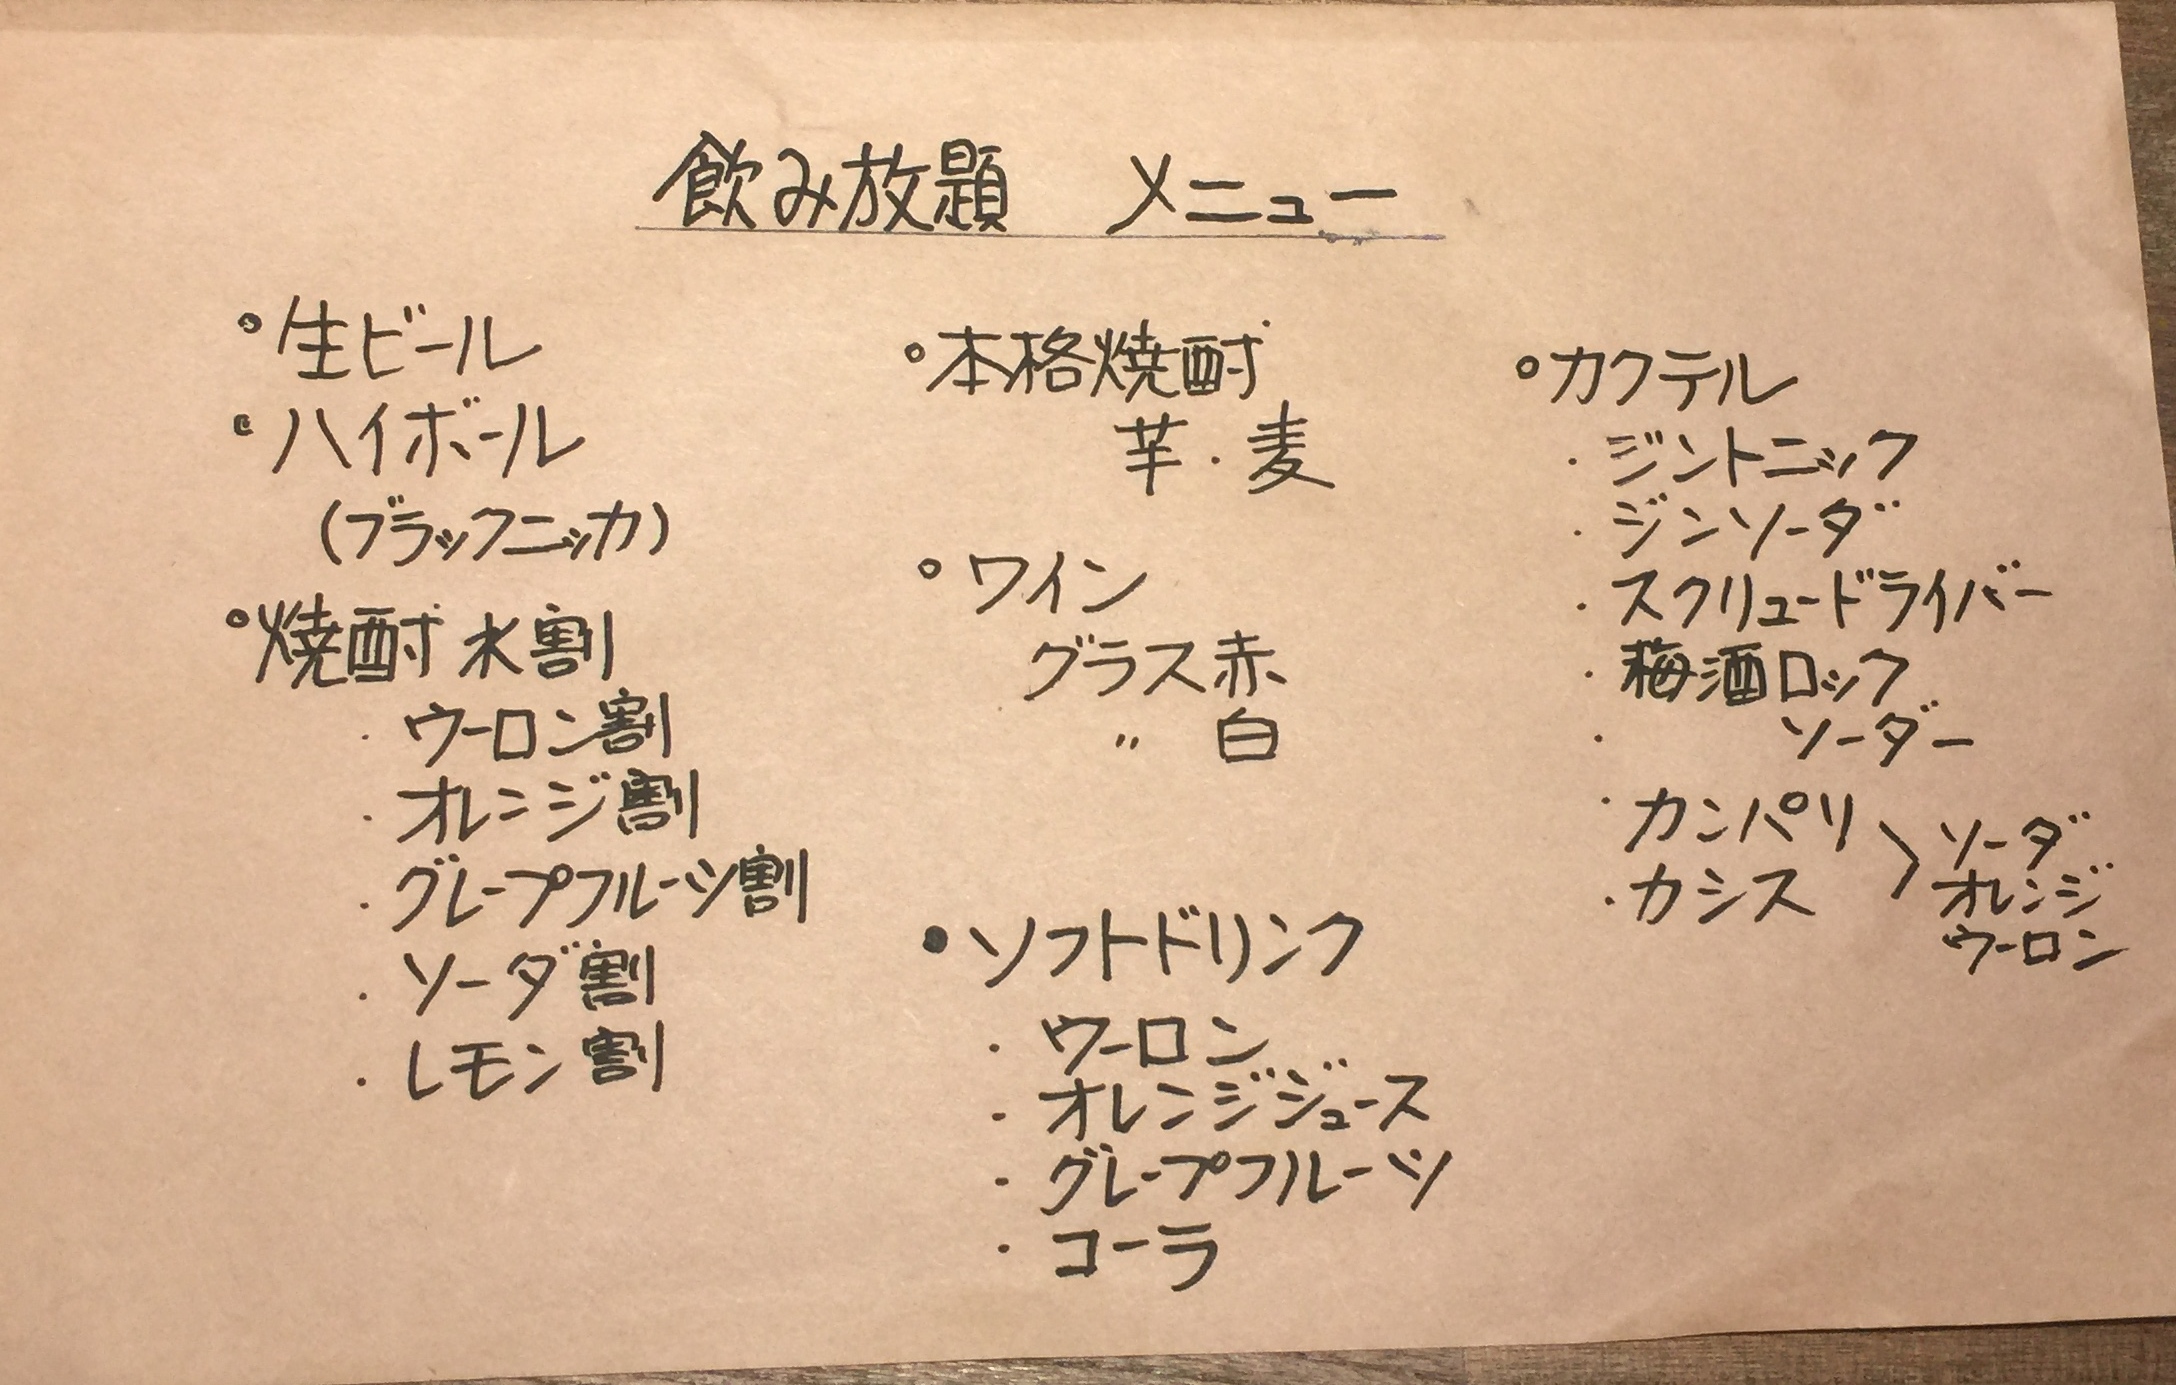 飲み放題 メニュー
°生ビール
°ハイボール
(ブラックニッカ)
°焼酎 水割
・ウーロン割
・オレンジ割
・グレープフルーツ割
・ソーダ割
・レモン割
°本格焼酎
芋・麦
°ワイン
グラス赤
〃 白
●ソフトドリンク
・ウーロン
・オレンジジュース
・グレープフルーツ
・コーラ
°カクテル
・ジントニック
・ジンソーダ
・スクリュードライバー
・梅酒ロック
・ソーダー
・カンパリ
・カシス
ソーダ
オレンジ
ウーロン